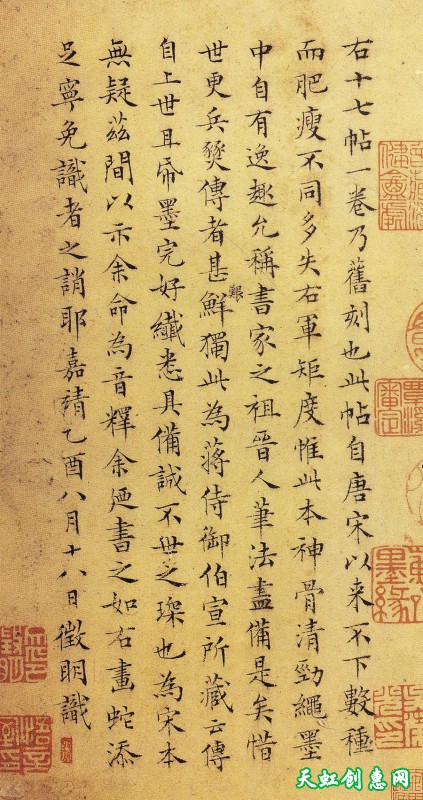 右十七帖一卷乃舊刻也此帖自唐宋以来不下數種
而肥瘦不同多失右軍矩度惟此本神骨清勁繩墨
中自有逸趣允稱書家之祖晉人筆法盡備是矣惜
世更兵燹傳者甚艱鮮獨此為蔣侍御伯宣所藏云傳
自上世且帋墨完好纖悉具備誠不世之琛也為宋本
無疑茲間以示余命為音釋余廼書之如右畫蛇添
足寧免識者之誚耶嘉靖乙酉八月十八日徵明識
天虹创惠网